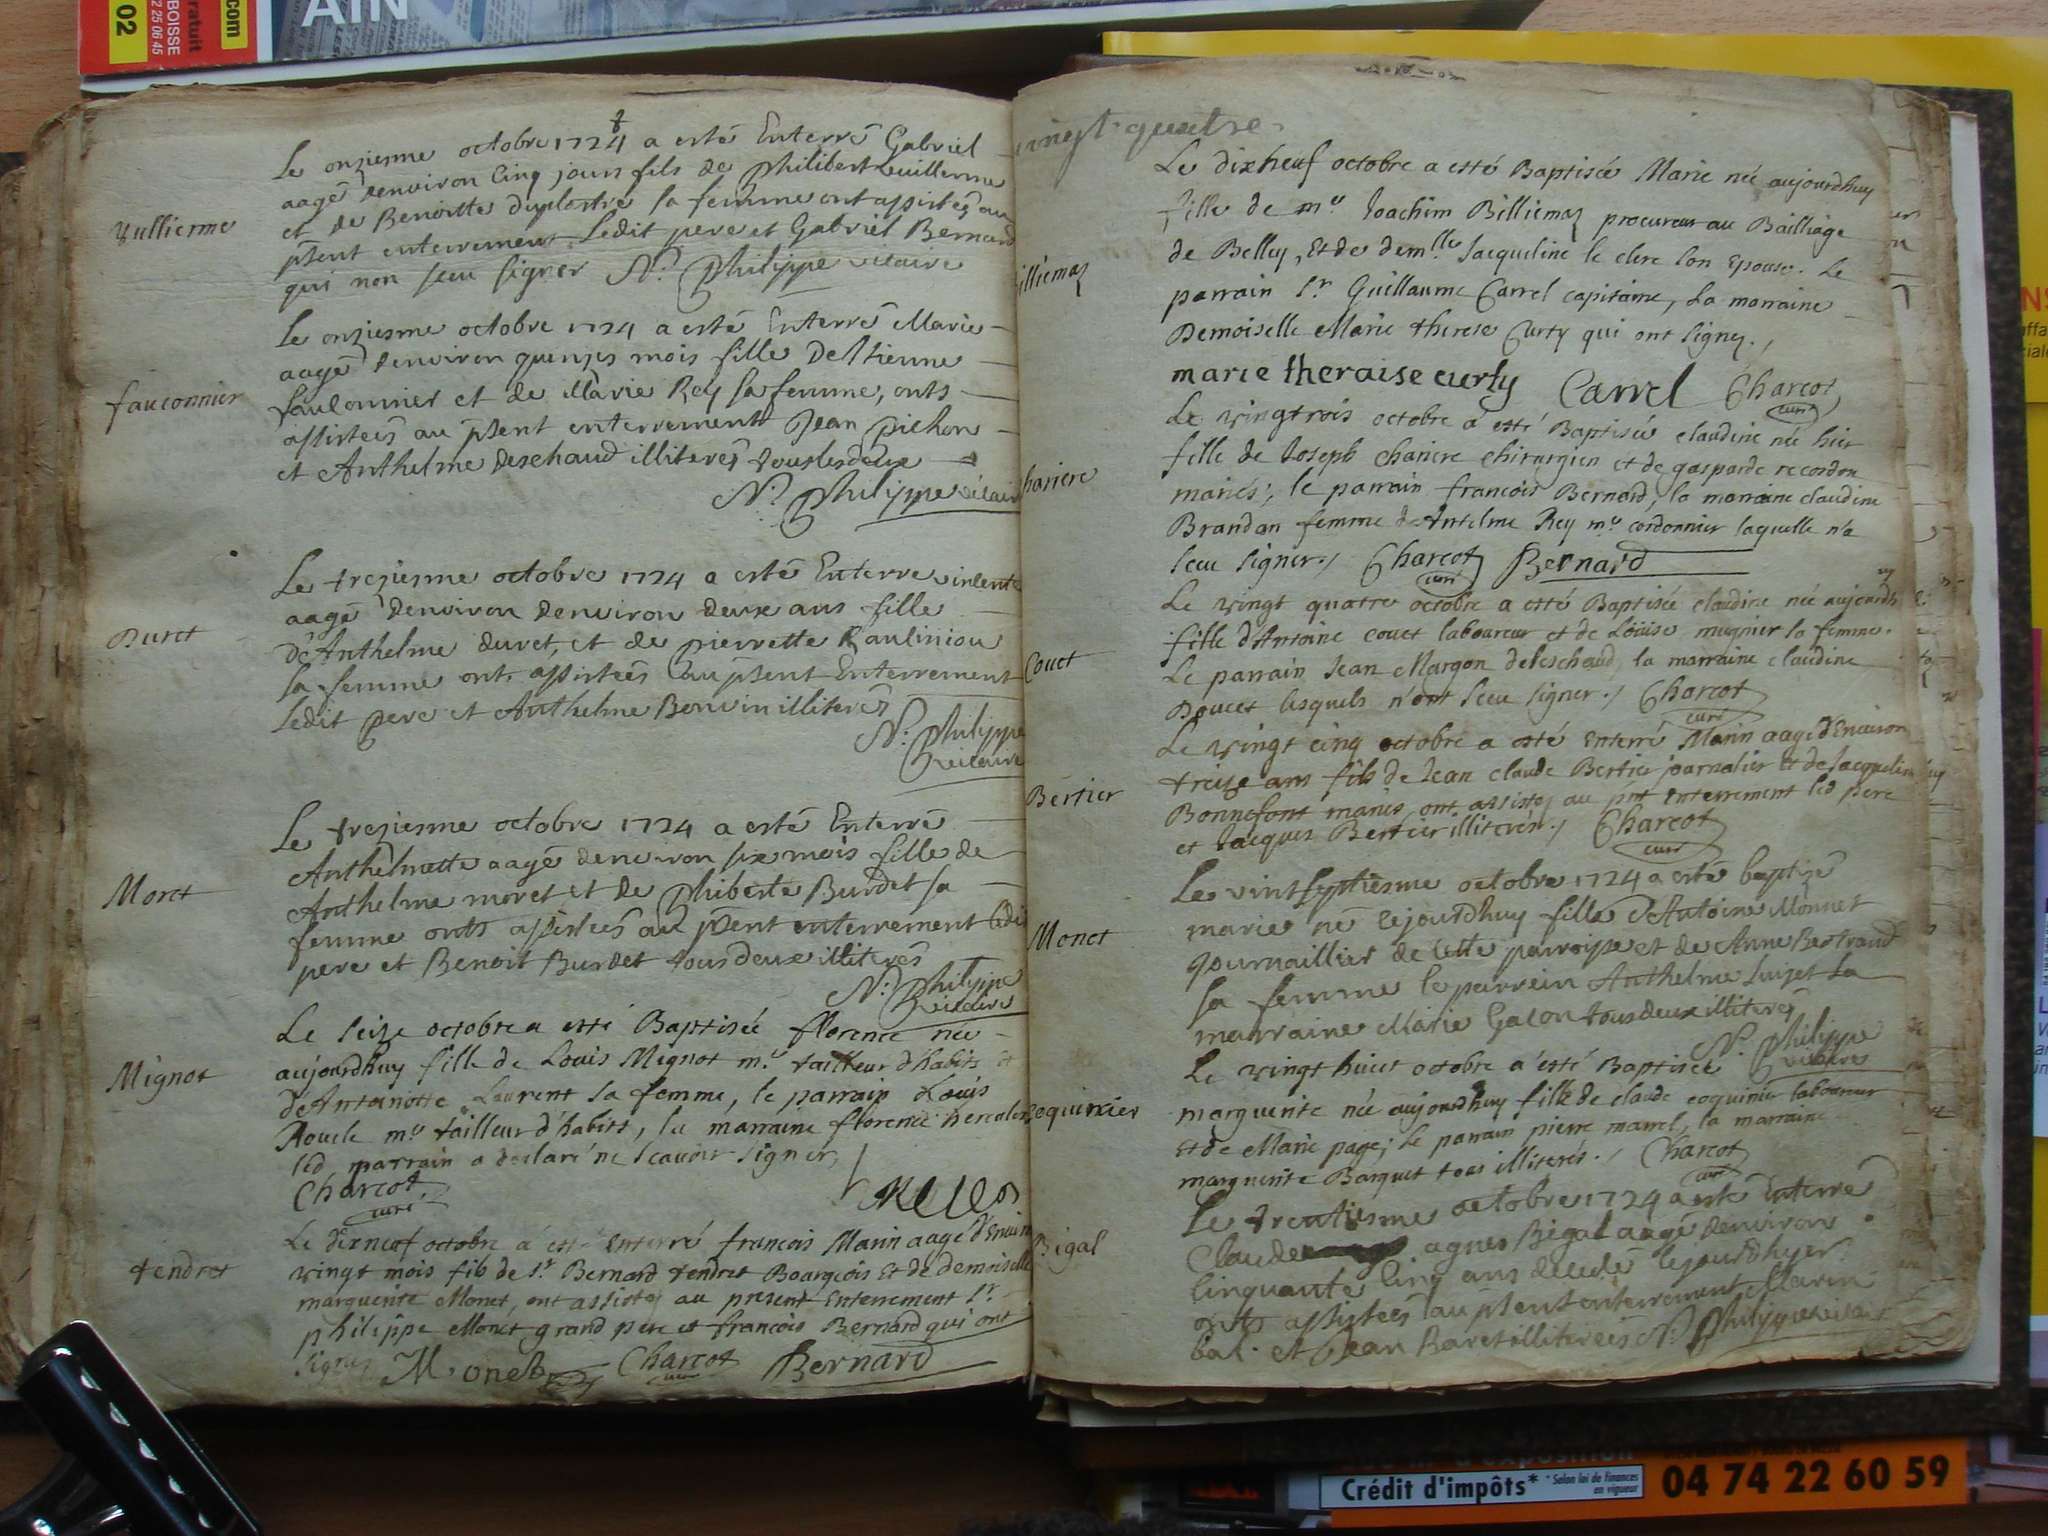 AIN
.com
02
ratuit
BOISSE
2 25 06 45
Vullierme
Le onziesme octobre 1724 a esté Enterré Gabriel
aagé denviron cinq jours fils de philibert vuillerme
et de Benoitte duplastre sa femme ont assistes au
pñt enterrement Ledit pere et Gabriel Bernard
qui non sceu signer N: Philippe vicaire
fauconnier
Le onziesme octobre 1724 a esté Enterré Marie
aagé denviron quinzes mois fille de Etienne
faulconnier et de Marie Rey sa femme, onts
assistees au pñt enterrement Jean pichon
et Anthelme Deschaud illiteres tous les deux
N: Philippe vicaire
Duret
Le treziesme octobre 1724 a esté Enterre vincente
aagé denviron denviron deux ans fille
de Anthelme duret, et de pierrette Rauliniou
sa femme ont assistees au pñt Enterrement
Ledit pere et Anthelme Bonvin illiteres
N: Philippe
vicaire
Moret
Le treziesme octobre 1724 a esté Enterré
Anthelmette aagé denviron six mois fille de
Anthelme moret et de phiberte Burdet sa
femme onts assistees au pñt enterrement ledit
pere et Benoit Burdet tous deux illiteres
N: Philippe
vicaire
Mignot
Le seize octobre a esté Baptisée florence née
aujourdhuy fille de Louis Mignot me tailleur d'habits et
d'Antoinette Laurent sa femme, le parrain Louis
me tailleur d'habits, la marraine florence
led parrain a declaré ne scavoir signer
Charcot
curé
tendret
Le dixneuf octobre a esté enterré francois Marin aagé d'Environ
vingt mois fils de Sr Bernard tendret Bourgeois et de demoiselle
marguerite Monet, ont assisté au present Enterrement Sr
philippe Monet grand pere et francois Bernard qui ont
signez Monet Charcot Bernard
curé
vingt quatre
illiemaz
Le dixneuf octobre a esté Baptisée Marie née aujourdhuy
fille de me Joachim Billiemaz procureur au Bailliage
de Belley, et de demlle Jacqueline le clerc son Epouse. Le
parrain Sr Guillaume Carrel capitaine, La marraine
Demoiselle Marie therese Curty qui ont signez.
marie theraise curty Carrel Charcot
curé
hariere
Le vingtrois octobre a esté Baptisée claudine née hier
fille de Joseph chariere chirurgien et de gasparde recordon
mariés; le parrain francois Bernard, la marraine claudine
Brandan femme d'Antelme Rey me cordonnier laquelle n'a
sceu signer. Charcot Bernard
curé
Couet
Le vingt quatre octobre a esté Baptisée claudine née aujourdhuy
fille d'Antoine couet laboureur et de Loüise mugnier sa femme.
Le parrain Jean Margon de leschaud, la marraine claudine
Doucet lesquels n'ont sceu signer. Charcot
curé
Bertier
Le vingt cinq octobre a esté enterré Marin aagé d'Environ
treize ans fils de Jean claude Bertier journalier et de Jacqueline
Bonnefont mariés ont assistez au pnt enterrement led pere
et Jacques Bertier illiterés. Charcot
curé
Monet
Le vintseptiesme octobre 1724 a esté baptizé
marie né cejourdhuy fille d'Antoine Monnet
gournaillier de cette parroisse et de Anne Bertrand
sa femme le parrein Anthelme Luizet La
marraine Marie Galon tous deux illiteres
N: Philippe
vicaire
Coquinier
Le vingt huict octobre a esté Baptisée
marguerite née aujourdhuy fille de claude coquinier laboureur
et de Marie page; le parrain pierre marrel, la marraine
marguerite Barquet tous illiterés. Charcot
curé
Bigal
Le trentiesme octobre 1724 a esté Enterré
Claude agnes Bigal aagé denviron
cinquante cinq ans decedé le jourdhyer
onts assistees au pñt enterrement Marin
bal. et Jean Baret illiterées N: Philippe vicaire
Crédit d'impôts*
* Selon loi de finances
en vigueur
04 74 22 60 59